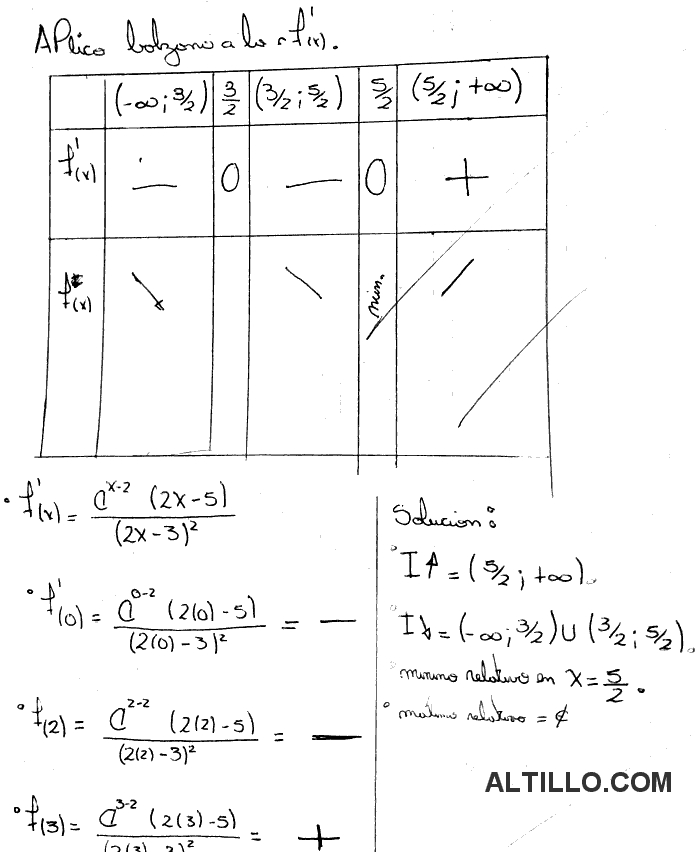 APlico bolzano a la f'(x).
(-∞; 3/2) 3/2 (3/2; 5/2) 5/2 (5/2; +∞)
f'(x) — 0 — 0 +
f(x) ↘ ↘ mín. ↗
• f'(x) = e^(x-2) (2x-5) / (2x-3)²
• f'(0) = e^(0-2) (2(0)-5) / (2(0)-3)² = —
• f(2) = e^(2-2) (2(2)-5) / (2(2)-3)² = —
• f(3) = e^(3-2) (2(3)-5) / (2(3)-3)² = +
Solucion:
• I↑ = (5/2; +∞).
• I↓ = (-∞; 3/2) ∪ (3/2; 5/2).
• minimo relativo en x = 5/2.
• maximo relativo = ∉
ALTILLO.COM